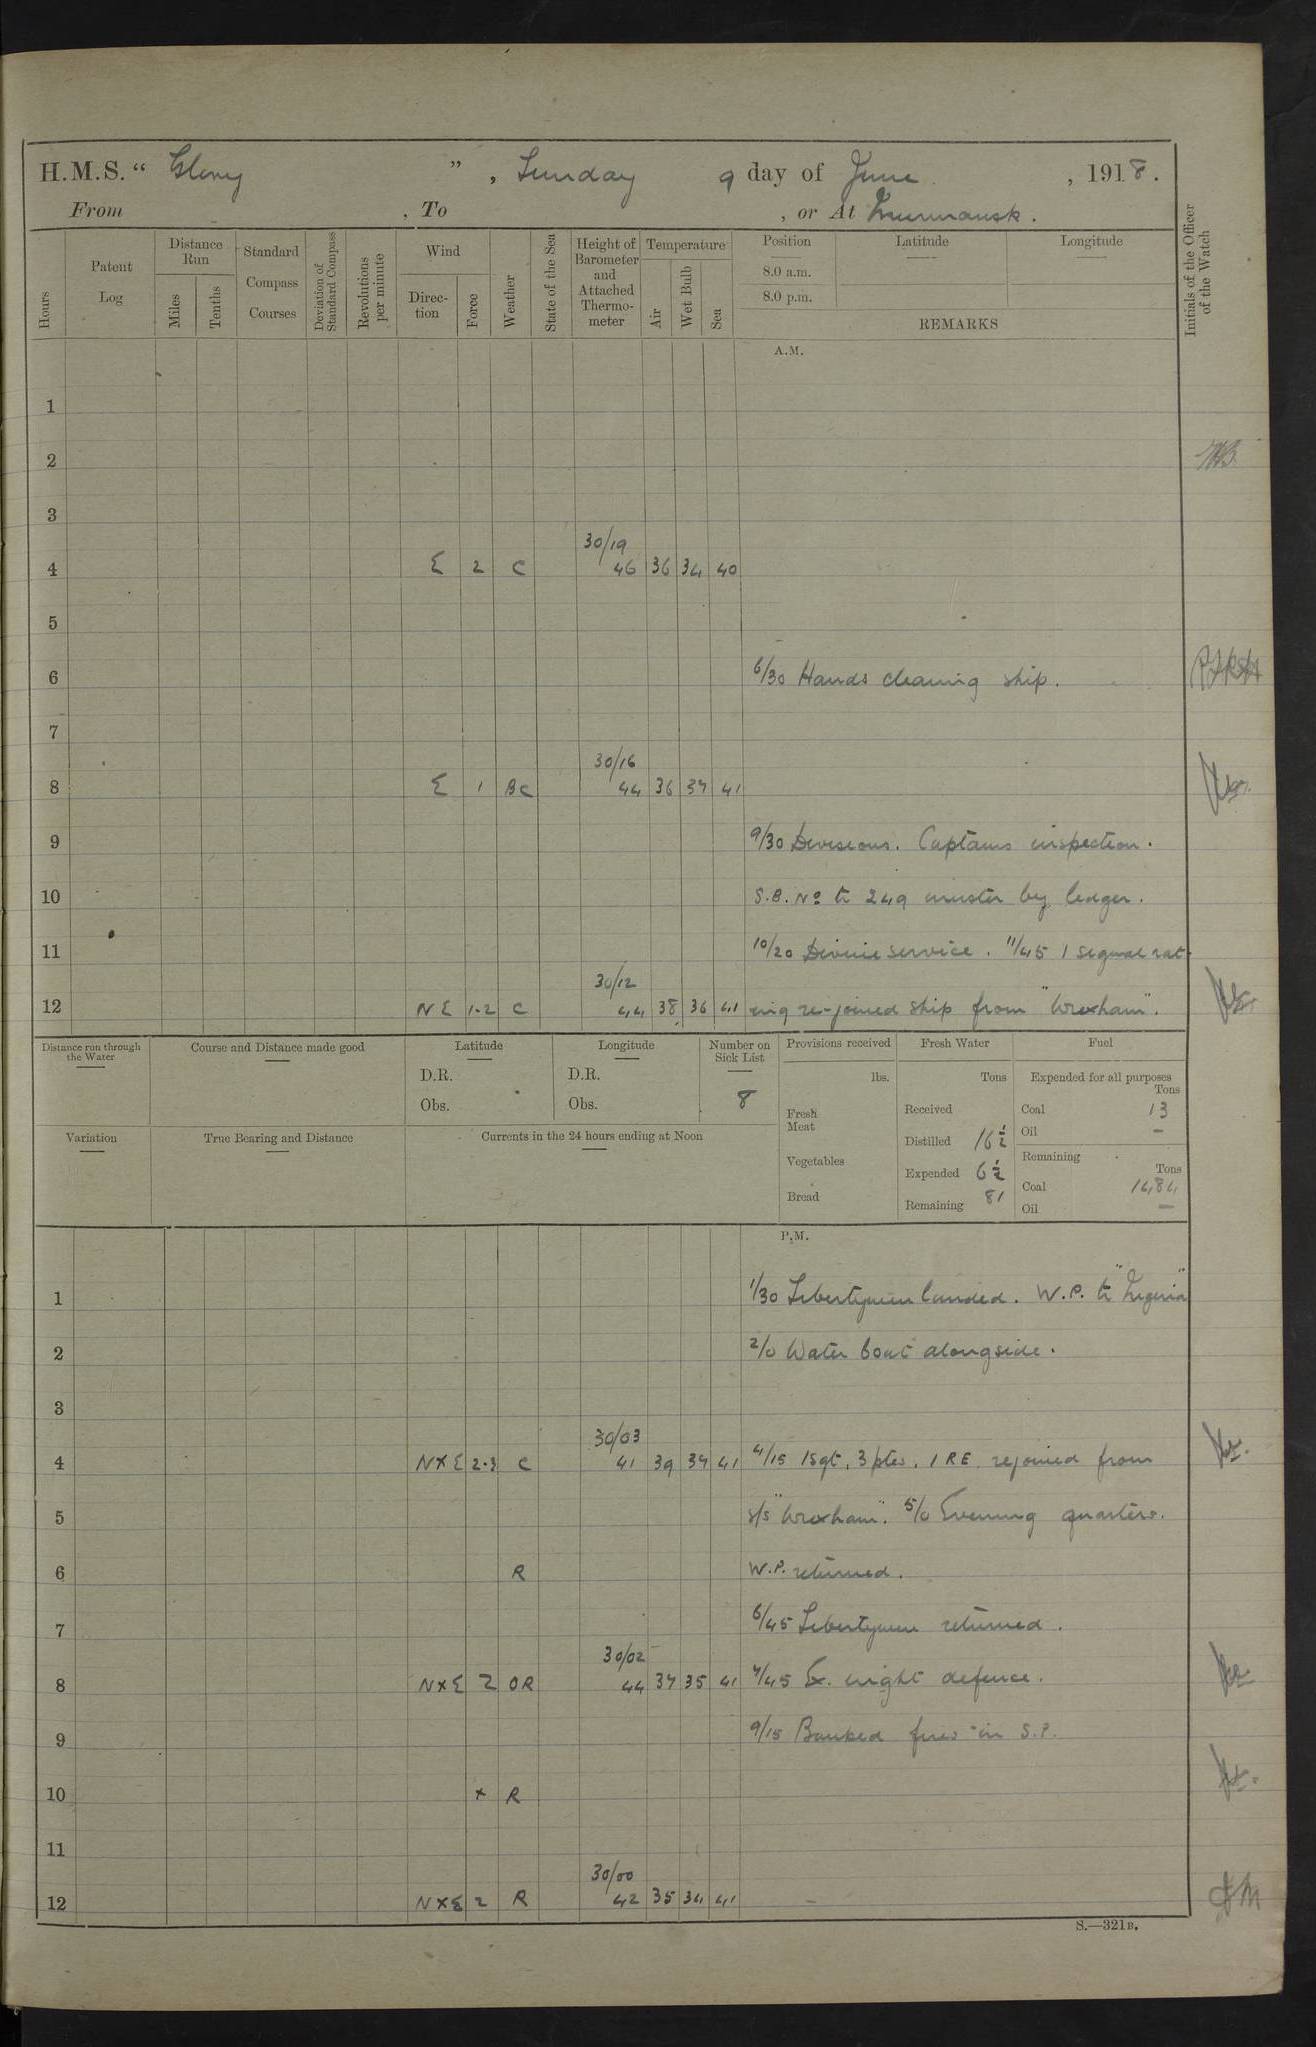 H.M.S. “ Glory ” , Sunday 9 day of June , 1918.
From , To , or At Murmansk.
Hours
Patent Log
Distance Run
Miles
Tenths
Standard Compass Courses
Deviation of Standard Compass
Revolutions per minute
Wind
Direc-tion
Force
Weather
State of the Sea
Height of Barometer and Attached Thermo-meter
Temperature
Air
Wet Bulb
Sea
Position
8.0 a.m.
8.0 p.m.
Latitude
Longitude
REMARKS
Initials of the Officer of the Watch
A.M.
1
2
3
30/19
4 E 2 C 46 36 34 40
5
6 6/30 Hands cleaning ship.
7
30/16
8 E 1 BC 44 36 34 41
9 9/30 Divisions. Captains inspection.
10 S.B. No to 249 muster by ledger.
11 10/20 Divine service. 11/45 1 signal rat-
30/12
12 NE 1-2 C 44 38 36 41 ing re-joined ship from "Wrexham".
Distance run through the Water
Course and Distance made good
Latitude
D.R.
Obs.
Longitude
D.R.
Obs.
Number on Sick List
8
Provisions received
lbs.
Fresh Meat
Vegetables
Bread
Fresh Water
Tons
Received
Distilled 16½
Expended 6½
Remaining 81
Fuel
Expended for all purposes
Tons
Coal 13
Oil —
Remaining
Tons
Coal 1484
Oil —
Variation
True Bearing and Distance
Currents in the 24 hours ending at Noon
P.M.
1 1/30 Libertymen landed. W.P. to "Nigeria"
2 2/0 Water boat alongside.
3
30/03
4 NXE 2.3 C 41 39 37 41 4/15 1 Sgt, 3 ptes, 1 RE rejoined from
5 s/s "Wrexham". 5/0 Evening quarters.
6 R W.P. returned.
7 6/45 Libertymen returned.
30/02
8 NXE 2 OR 44 37 35 41 7/45 Ex. night defence.
9 9/15 Banked fires in S.P.
10 x R
11
30/00
12 NXE 2 R 42 35 34 41
S.—321B.